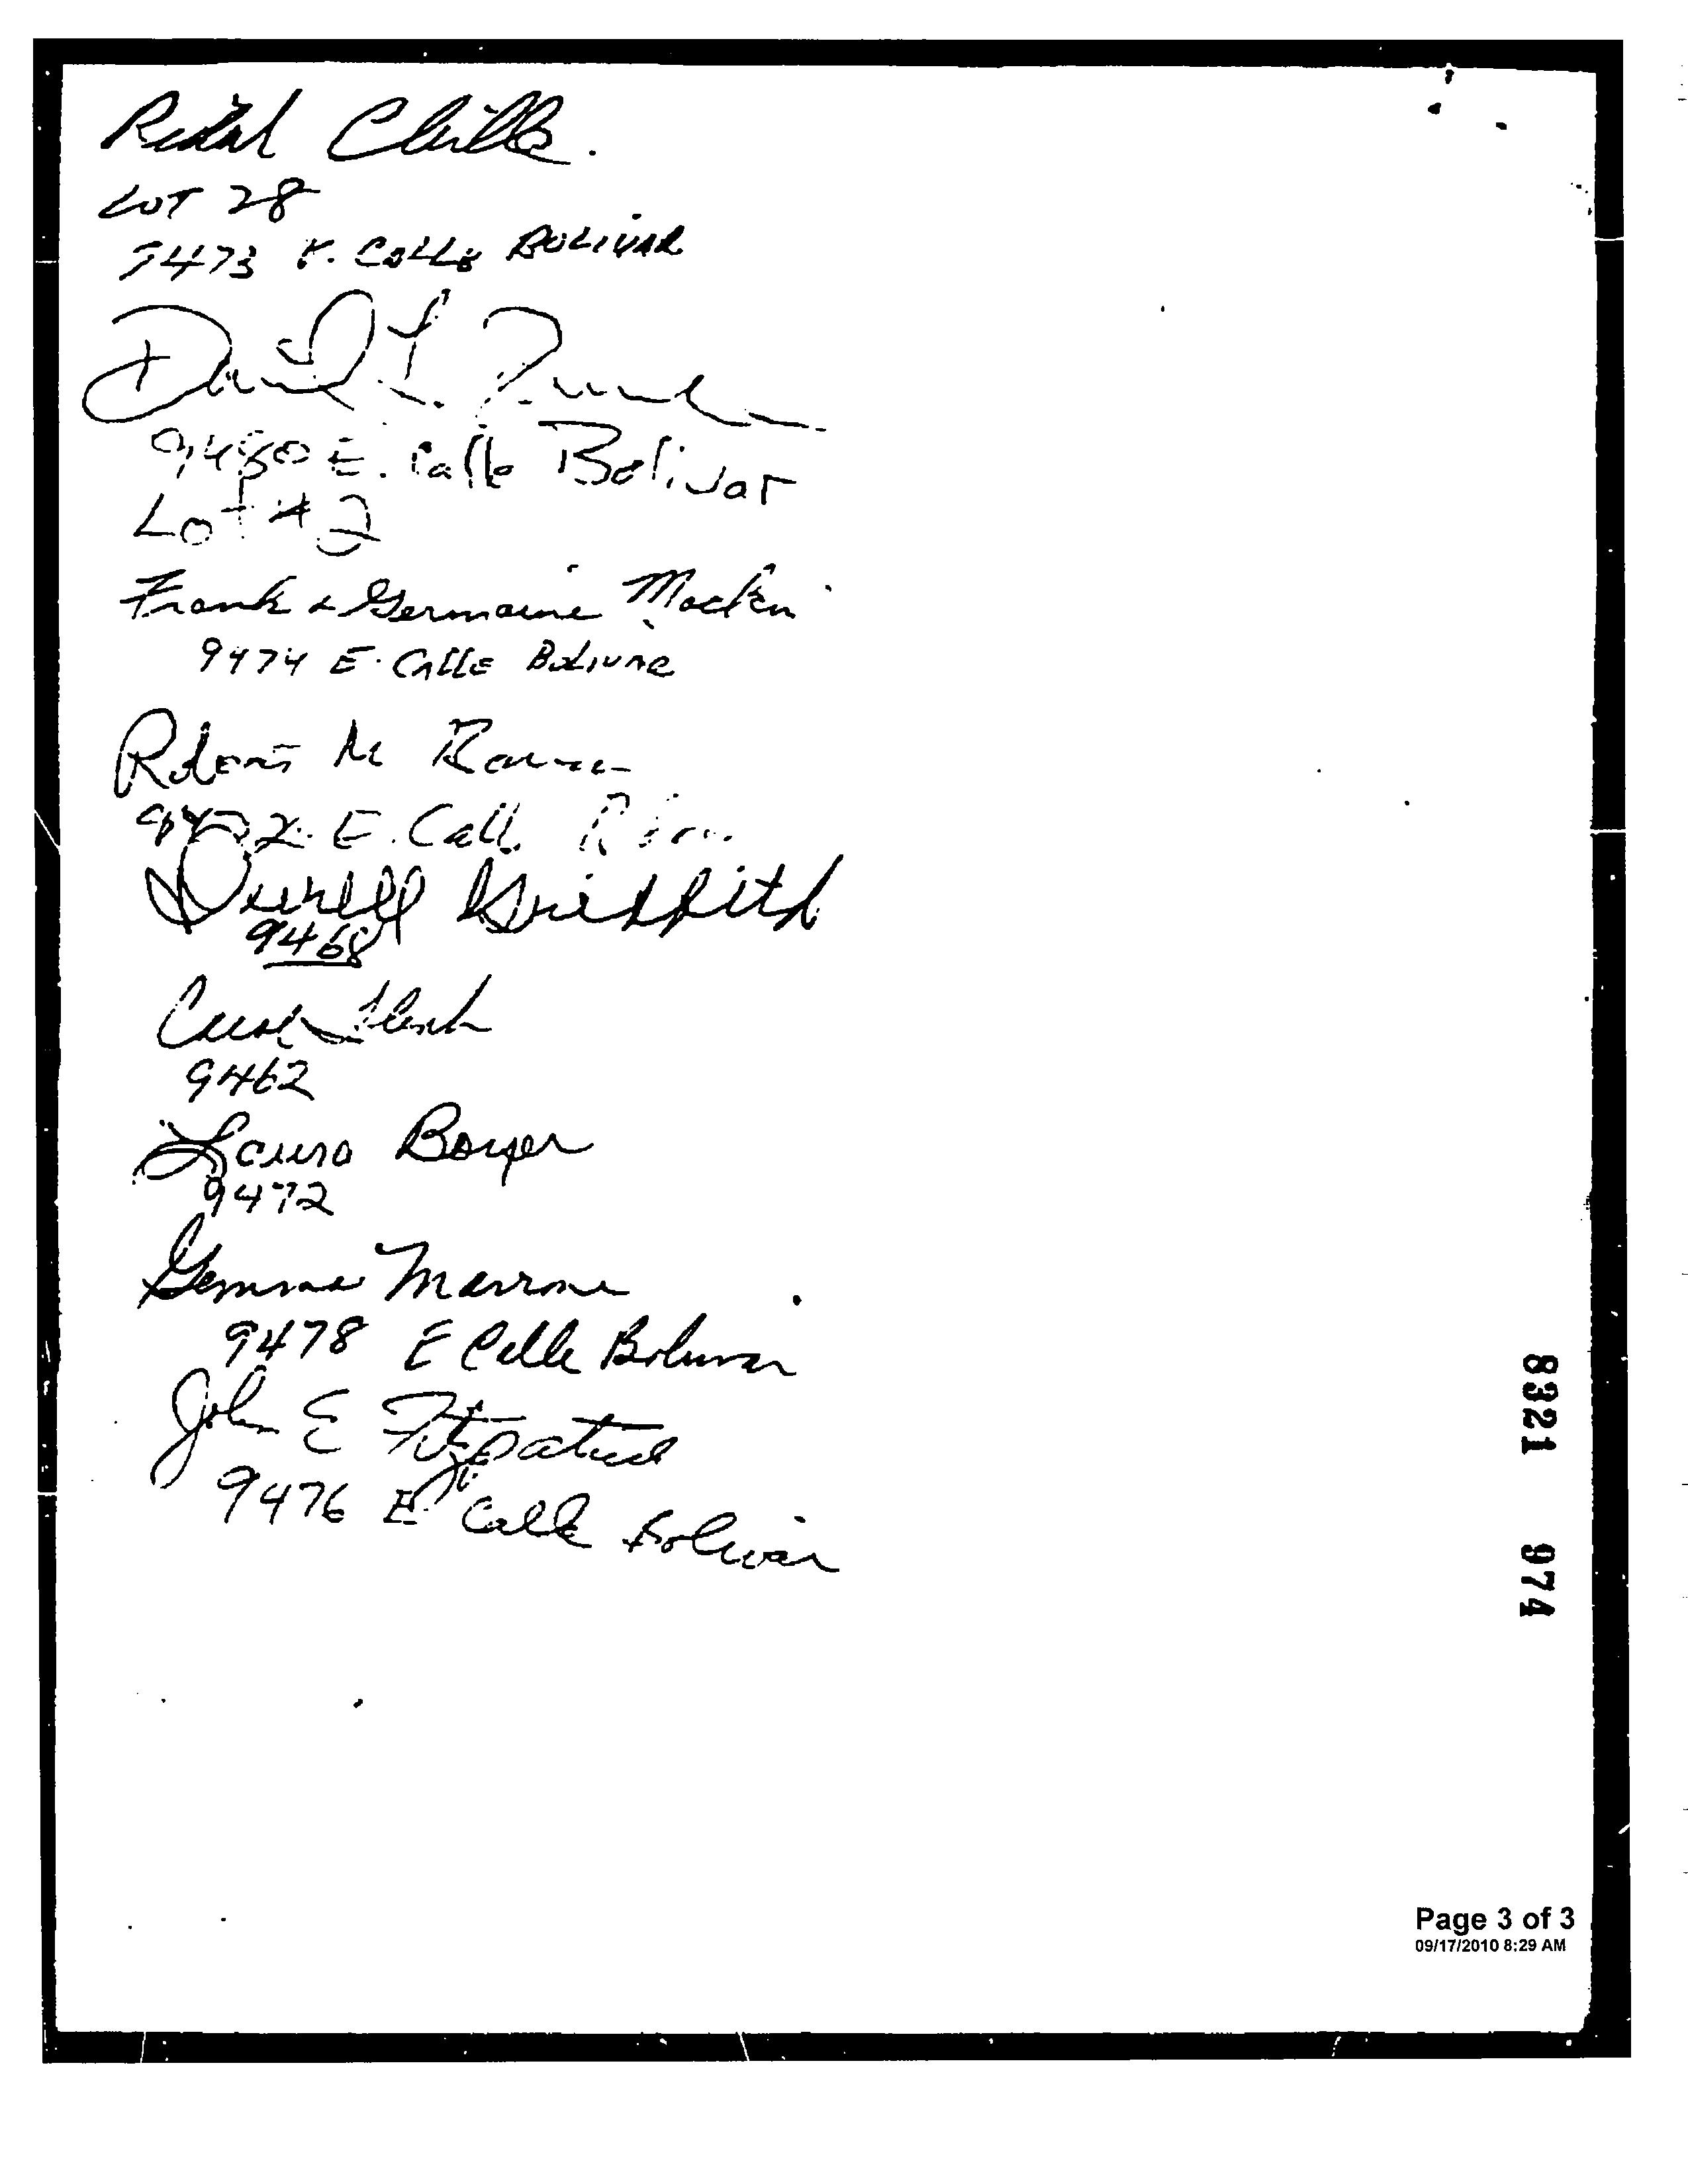 LOT 28
9473 E. CALLE BOLIVAR
David L.
9480 E. Calle Bolivar
Lot # 2
Frank & Germaine
9474 E. CALLE BOLIVAR
Robert M
E. Calle
Durell Griffith
9468
9462
Laura Boryer
9472
Gemma Marrone
9478 E Calle Bolivar
John E Fitzpatrick
9476 E. Calle Bolivar
8321 974
Page 3 of 3
09/17/2010 8:29 AM